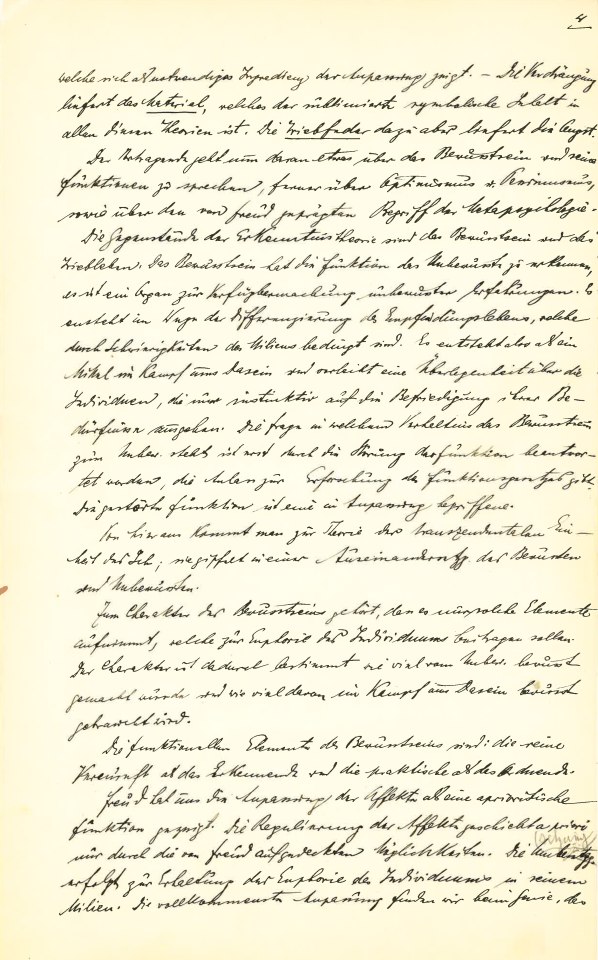 4
welche sich als notwendiges Ingredienz der Anpassung zeigt. – Die Verdrängung
liefert das Material, welches der sublimierte symbolische Inhalt in
allen diesen Theorien ist. Die Triebfeder dazu aber liefert die Angst.
Der Vortragende geht nun daran etwas über das Bewusstsein und seine
Funktionen zu sprechen, ferner über Optimismus u. Pessimismus,
sowie über den von Freud geprägten Begriff der Metapsychologie.
Die Gegenstände der Erkenntnistheorie sind das Bewusstsein und das
Triebleben. Das Bewusstsein hat die Funktion des Unbewusste zu erkennen,
es ist ein Organ zur Verfügbarmachung unbewusster Erfahrungen. Es
entsteht im Wege der Differenzierung des Empfindungslebens, welche
durch Schwierigkeiten des Milieus bedingt sind. Es entsteht also als ein
Mittel im Kampf ums Dasein und verleiht eine Überlegenheit über die
Individuen, die nur instinktiv auf die Befriedigung ihrer Be-
dürfnisse ausgehen. Die Frage in welchem Verhältnis das Bewusstsein
zum Unbew. steht ist erst durch die Störung der Funktion beantwor-
tet worden, die Anlass zur Erforschung des Funktionsgesetzes gibt.
Die gestörte Funktion ist eine in Anpassung begriffene.
Von hier aus kommt man zur Theorie der transzendentalen Ein-
heit des Ich; sie gipfelt in einer Auseinandersetzg. des Bewussten
und Unbewussten.
Zum Charakter des Bewusstseins gehört, dass es nur solche Elemente
aufnimmt, welche zur Euphorie des Individuums beitragen sollen.
Der Charakter ist dadurch bestimmt wie viel vom Unbew. bewusst
gemacht wurde und wie viel davon im Kampf ums Dasein bewusst
gehandelt wird.
Die funktionellen Elemente des Bewusstseins sind: die reine
Vernunft als das Erkennende und die praktische als das Ordnende.
Freud hat uns die Anpassung der Affekte als eine aprioristische
Funktion gezeigt. Die Regulierung der Affekte geschieht a priori
nur durch die von Freud aufgedeckten Möglichkeiten. Die
erfolgt zur Erhaltung der Euphorie des Individuums in seinem
Milieu. Die vollkommenste Anpassung finden wir beim Genie, der